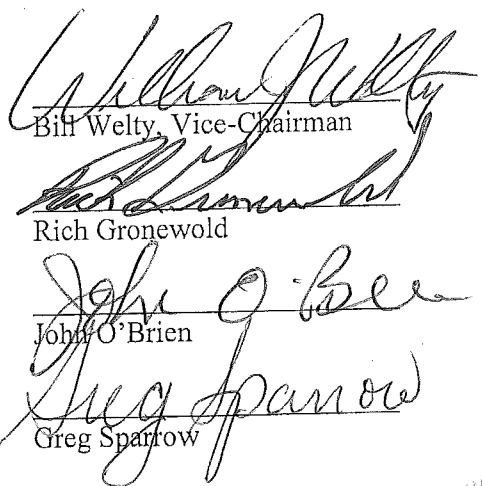 William J Welty
Bill Welty, Vice-Chairman
Rich Gronewold
Rich Gronewold
John O'Brien
John O'Brien
Greg Sparrow
Greg Sparrow